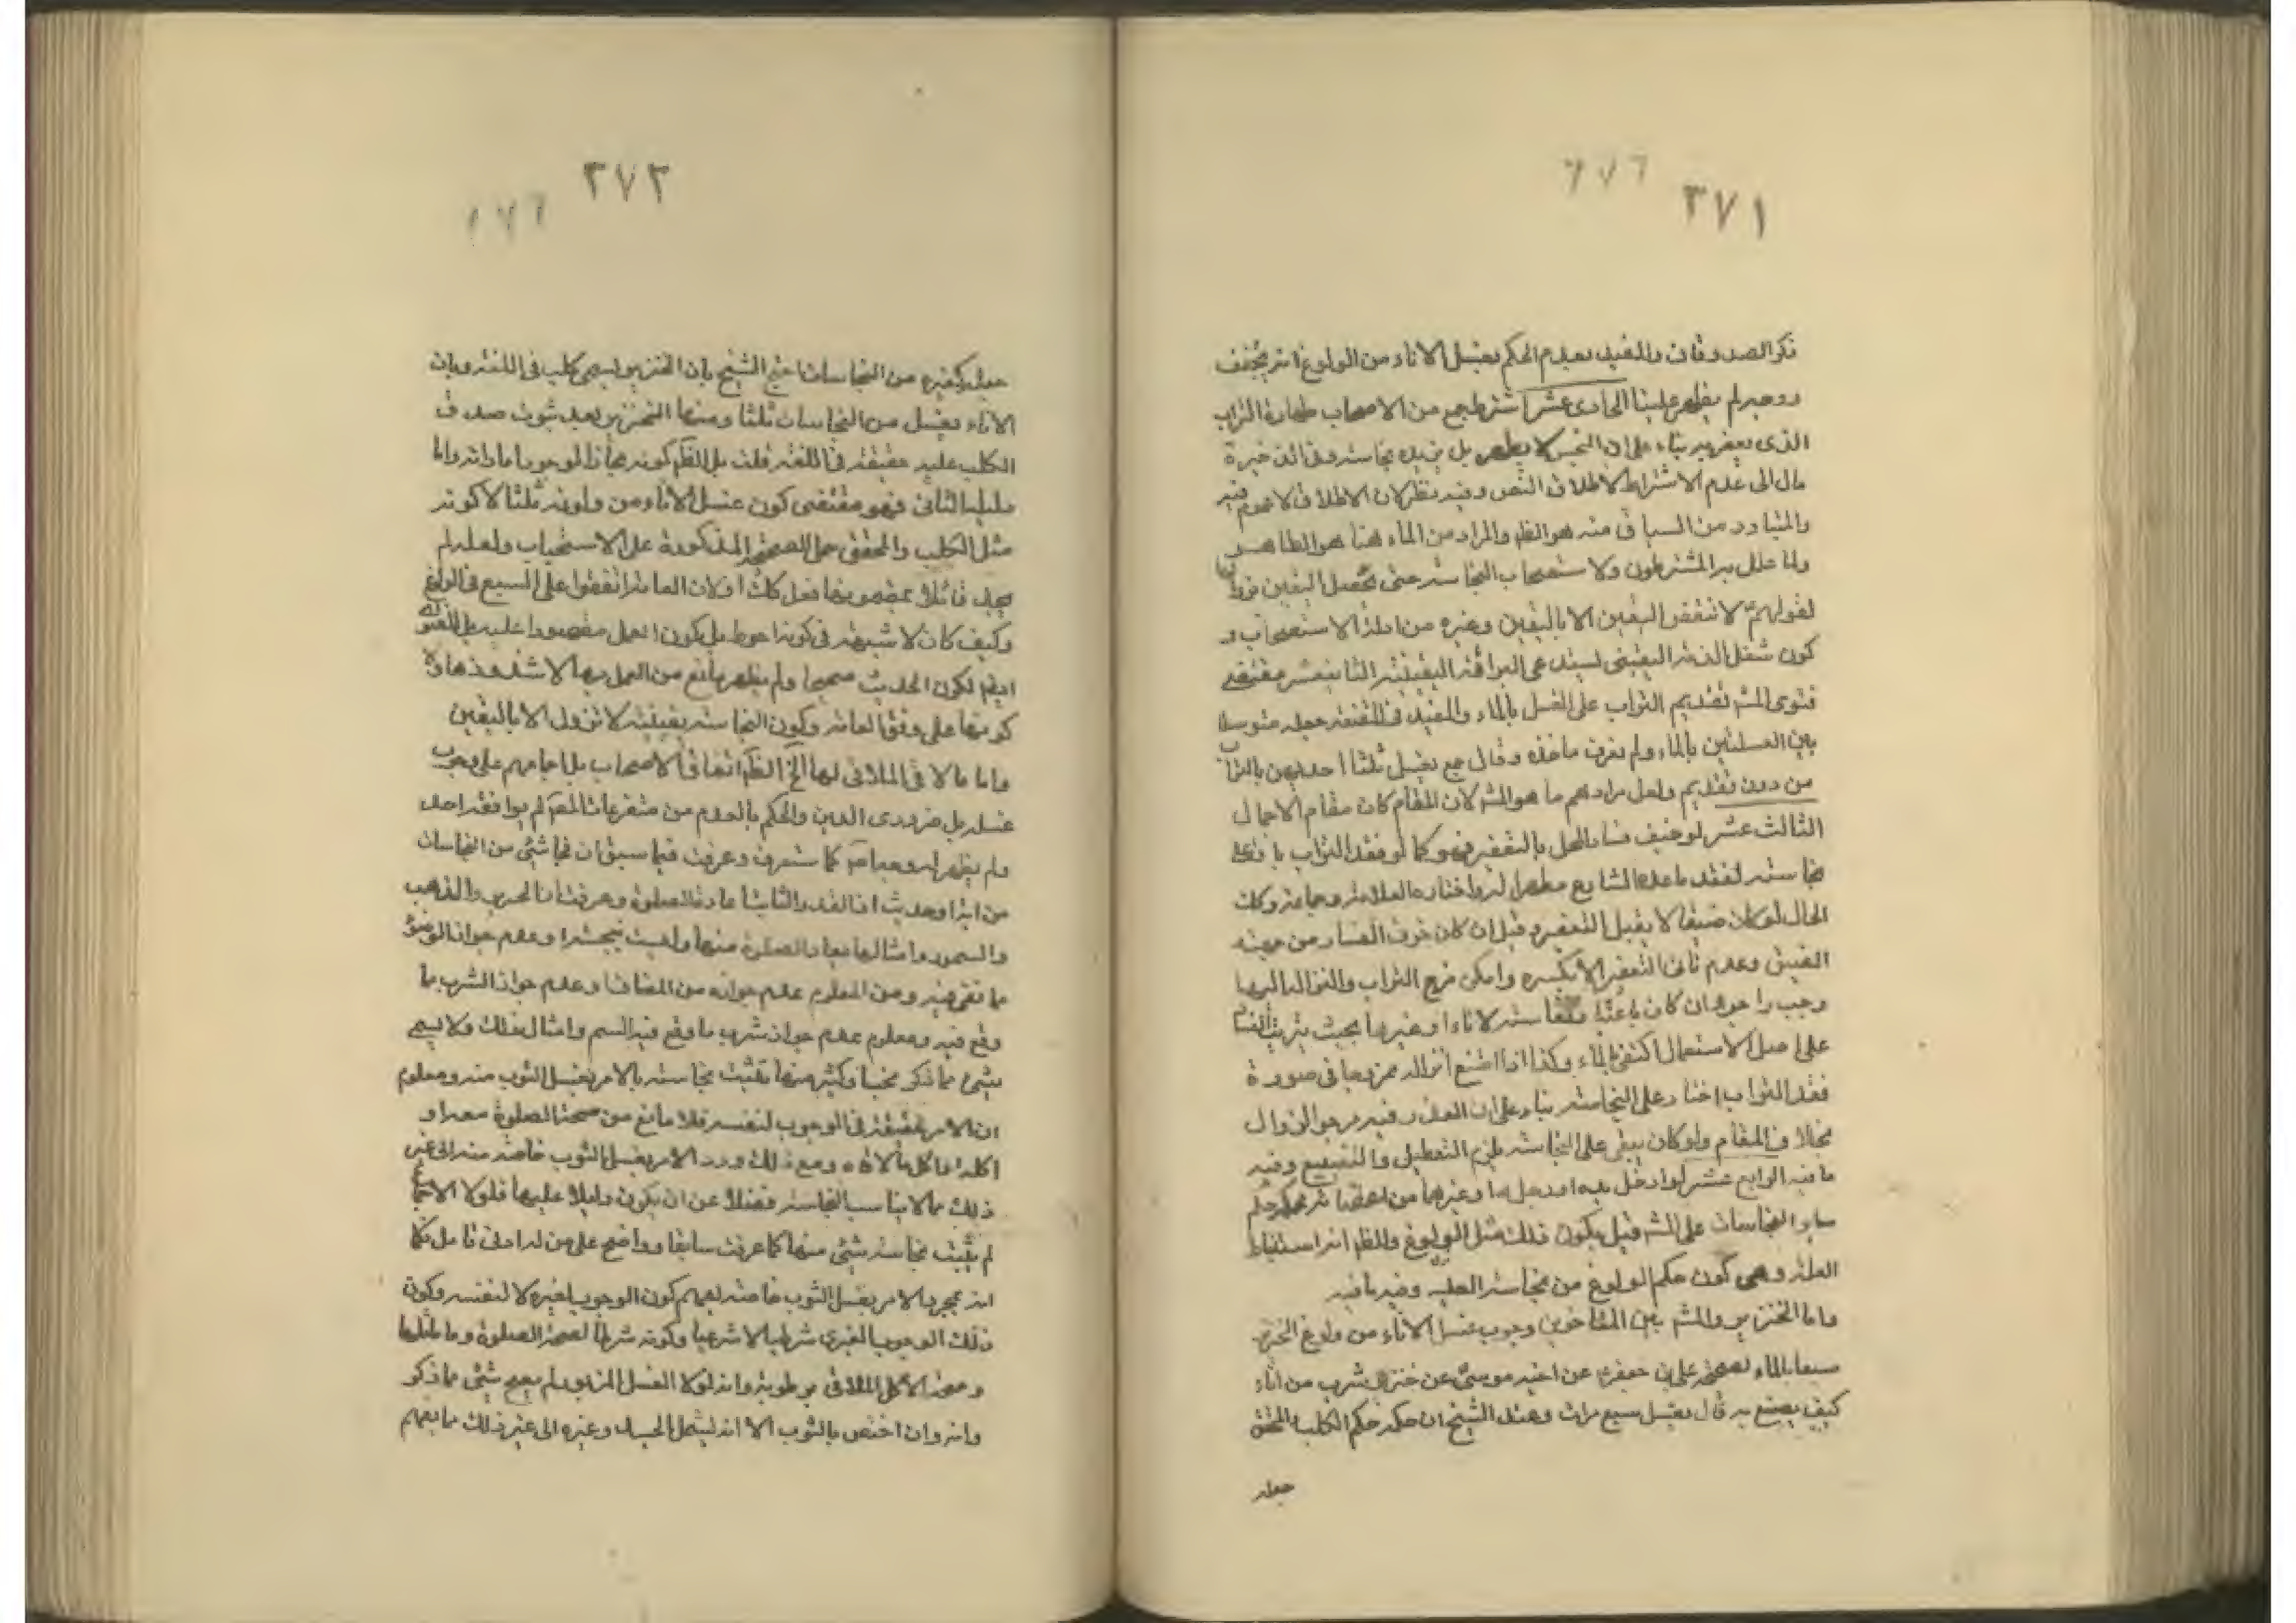 ٣٧١
٦٧٦
ذكر الصدوقان والمفيد بعدم الحكم بغسل الاناء من الولوغ انه يجفف
ووجهه لم يظهر علينا الحادى عشر اشترط جمع من الاصحاب طهارة التراب
الذى يعفر به بناء على ان النجس لا يطهر بل يزيده نجاسة وفى الذخيرة
مال الى عدم الاشتراط لاطلاق النص وفيه نظر لان الاطلاق لا عموم فيه
والمتبادر من السياق منه هو الظهر والمراد من الماء هنا هو الطاهر
ولما علل به المشترطون ولاستصحاب النجاسة حتى يحصل اليقين
لقولهم لا تنقض اليقين الا باليقين وغيره من ادلة الاستصحاب و
كون شغل الذمة اليقينى يستدعى البرائة اليقينية الثانى عشر مقتضى
فتوى المشه تقديم التراب على الغسل بالماء والمفيد فى المقنعة جعله متوسطا
بين الغسلتين بالماء ولم نعرف ماخذه وقال جمع يغسل ثلثا احديهن بالتراب
من دون تقديم ولعل مرادهم ما هو المشه لان المقام كان مقام الاجمال
الثالث عشر لو خيف فساد المحل بالتعفير فهو كما لو فقد التراب باق على
نجاسته لفقد ما عده الشارع مطهرا له واختاره العلامة وجماعة وكك
الحال لو كان ضيقا لا يقبل التعفير وقيل ان كان خوف الفساد من جهة
الضيق وعدم تاتى التعفير الا بكسره وامكن مزج التراب وانزاله اليها
وجب را حوله ان كان باعثا نفاسة الاناء او غيرها بحيث يترتب الفساد
على اصل الاستعمال اكتفى بالماء وكذا اذا امتنع انزاله ممزوجا فى صورة
فقد التراب اختار على النجاسة بناء على ان العذر فيه مرجو الزوال
بخلاف المقام ولو كان يبقى على النجاسة يلزم التعطيل والتضييع وفيه
ما فيه الرابع عشر لو ادخل يده او رجله او غيرهما من اعضائه فحكمه حكم
ساير النجاسات على المشه قيل يكون ذلك مثل الولوغ والظهر انه استنباط
العلة وهى كون حكم الولوغ من نجاسة الكلب وفيه ما فيه
واما الخنزير والمشه بين المتاخرين وجوب غسل الاناء من ولوغ الخنزير
سبعا بالماء لصحيحة على بن جعفر عن اخيه موسى عن خنزير شرب من اناء
كيف يصنع به قال يغسل سبع مرات وعند الشيخ ان حكمه حكم الكلب والمحقق
جعله
٣٧٢
٦٧٦
جعله كغيره من النجاسات احتج الشيخ بان الخنزير يسمى كلبا فى اللغة وبان
الاناء يغسل من النجاسات ثلثا ومنها الخنزير بعد ثبوت صدق
الكلب عليه حقيقة فى اللغة قلت بل الظهر كونه مجازا لوجود اماراته واما
دليله الثانى فهو مقتضى كون غسل الاناء من ولوغه ثلثا لا كونه
مثل الكلب والمحقق حمل الصحيحة المذكورة على الاستحباب ولعله لم
يجد قائلا بمضمونها فعل كك او لان العامة اتفقوا على السبع فى الولوغ
وكيف كان لا شبهة فى كونه احوط بل يكون العمل مقصورا عليه بل الفتوى
ايضا لكون الحديث صحيحا ولم يظهر مانع من العمل بها الا شذوذها و
كونها على وفق العامة وكون النجاسة يقينية لا تزول الا باليقين
واما ما لاقى الملاقى لها الخ الظهر اتفاق الاصحاب بل اجماعهم على وجوب
غسله بل ضرورى الدين والحكم بالعدم من متفرعات المصنف لم يوافقه احد
ولم يظهر له وجه اصلا كما ستعرف وعرفت فيما سبق ان نجاشئى من النجاسات
من اية او حديث اذ الغد والثابت اعادة الصلوة وعرفت ان الحرير والذهب
والسمور وامثالها يعاد الصلوة منها وليست بنجسة وعدم جواز الوضوء
مما تقى فيه ومن المعلوم عدم جوازه من المضاف وعدم جواز الشرب مما
وقع فيه ومعلوم عدم جواز شرب ما وقع فيه السم وامثال ذلك ولا يسمى
بشئ مما ذكر نجسا وكثير منها تثبت نجاسته بالامر بغسل الثوب منه ومعلوم
ان الامر حقيقة فى الوجوب لنفسه فلا مانع من صحة الصلوة معه او
اكله اذا اكل بالاناء ومع ذلك ورد الامر بغسل الثوب خاصة منه الى غير
ذلك مما لا يناسب النجاسة فضلا عن ان يكون دليلا عليها فلولا الاجماع
لم يثبت نجاسة شئى منها كما عرفت سابقا وواضح على من له ادنى تامل فكما
انه بمجرد الامر بغسل الثوب خاصة يفهم كون الوجوب لغيره لا لنفسه وكون
ذلك الوجوب الغيرى شرطيا لا شرعيا وكونه شرطا لصحة الصلوة وما ماثلها
وصحة الاكل الملاقى برطوبة وانه لولا الغسل المزبور لم يصح شئى مما ذكر
وانه وان اختص بالثوب الا انه يشمل الجسد وغيره الى غير ذلك مما يفهم